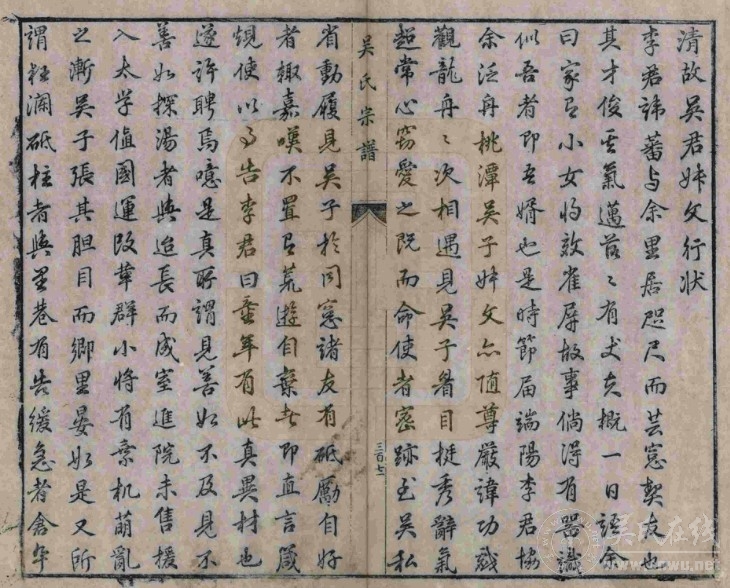 清故吴君姊丈行状
李君讳蕃与余里居咫尺而芸窓契友也
其才俊其氣邁落〻有丈夫概一日語余
曰家有小女將效雀屏故事倘得有器識
似吾者即吾婿也是時節届端陽李君协
余泛舟桃潭吴子姊丈亦随尊嚴諱功歲
觀龍舟〻次相遇見吴子眉目挺秀辭氣
超常心窃愛之既而命使者密跡至吴私
省動履見吴子於同窓諸友有砥厲自好
者輙嘉嘆不置有荒遊自棄者即直言箴
規使以子告李君曰童年有此真異材也
遂許聘焉噫是真所謂見善如不及見不
善如探湯者與迨長而成室進院未售援
入太学值國運改革群小将有乘机萌亂
之漸吴子張其胆目而鄉里晏如是又所
謂狂瀾砥柱者與里巷有告缓急者倉卒
吴氏宗譜
三百七
吴氏在线
zcwu.com